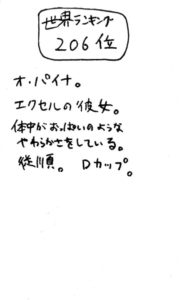 世界ランキング
206位
オ・パイナ。
エクセルの彼女。
体中がおっぱいのような
やわらかさをしている。
従順。 Dカップ。